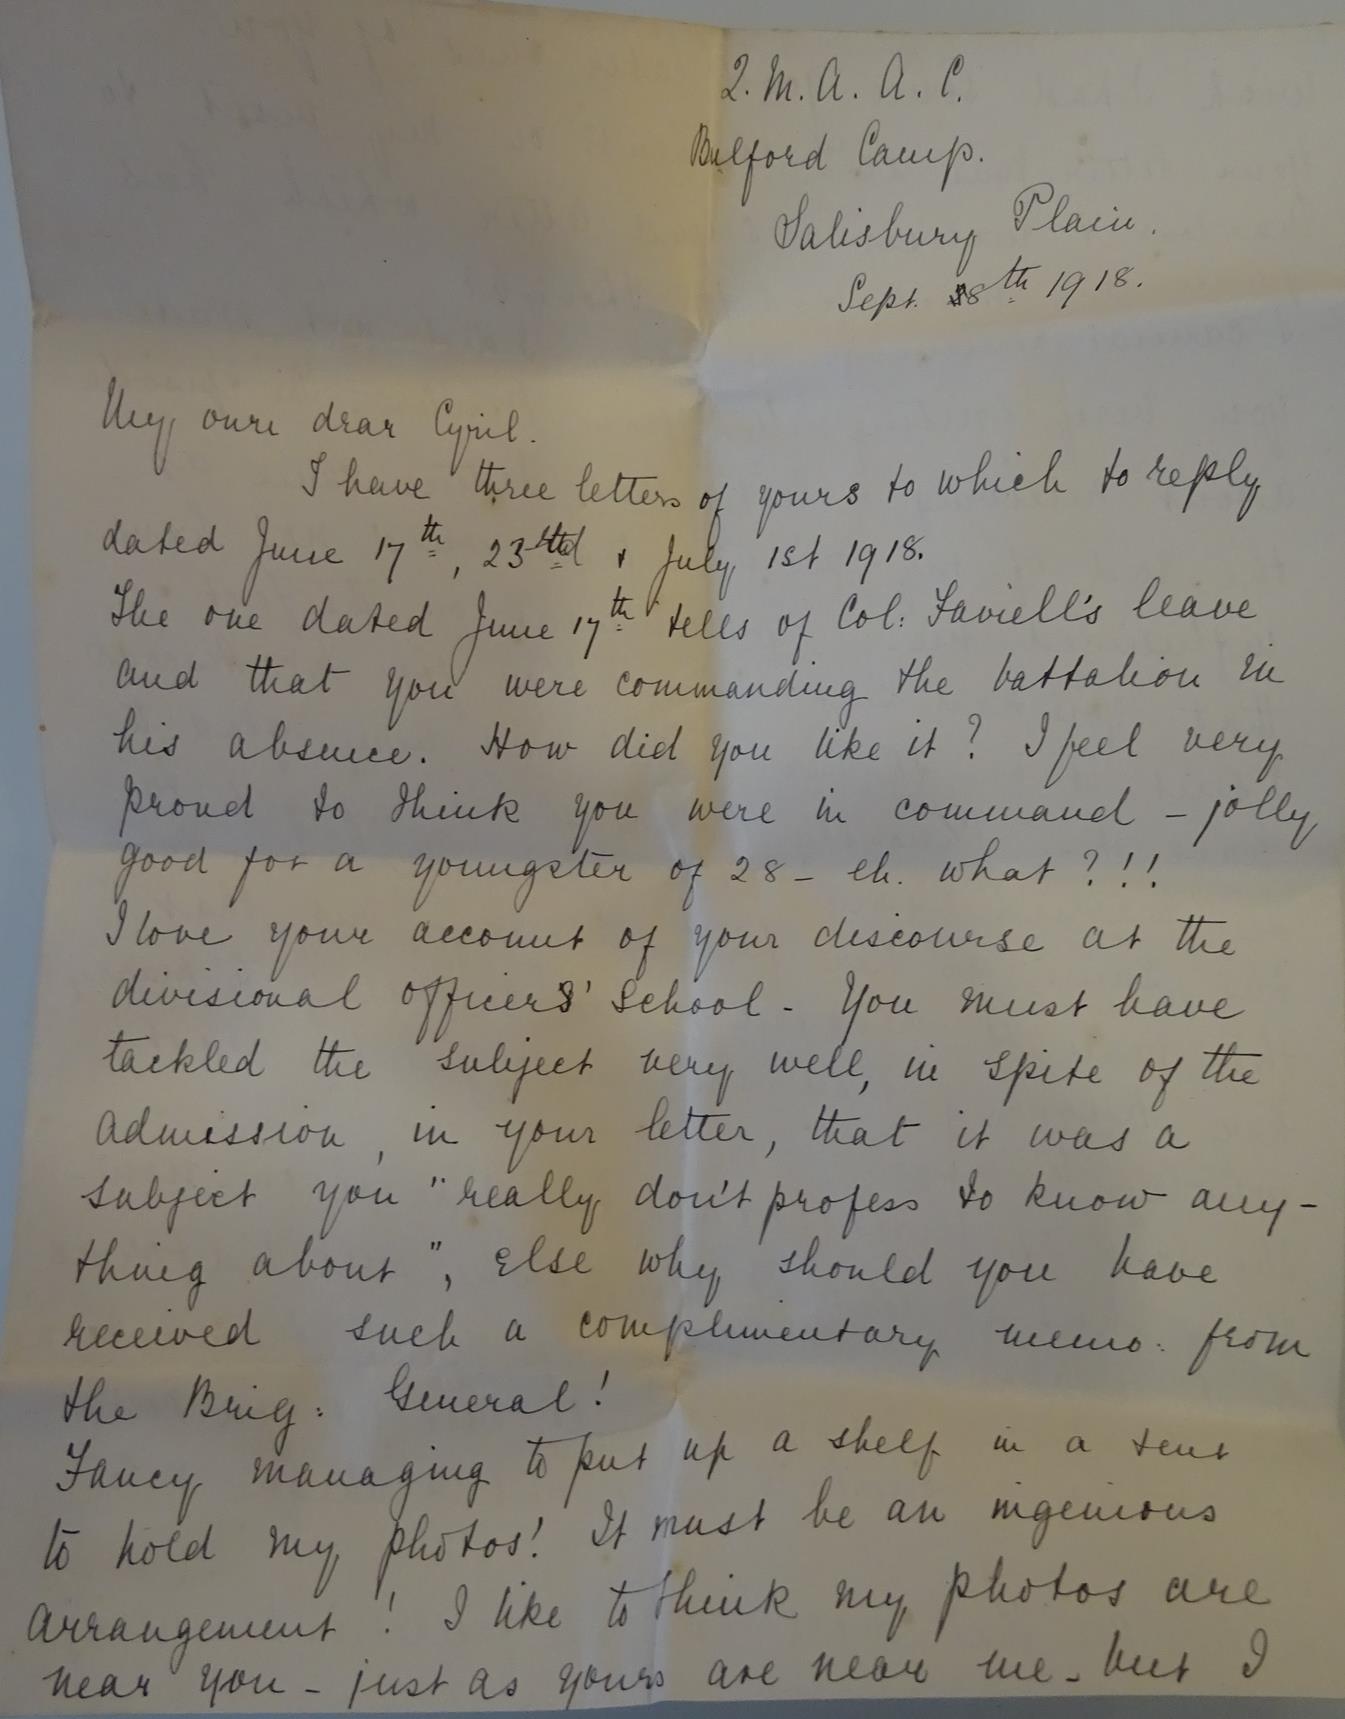 Q.M.A.A.C.
Bulford Camp.
Salisbury Plain.
Sept. 8th 1918.
My own dear Cyril.
I have three letters of yours to which to reply
dated June 17th, 23rd & July 1st 1918.
The one dated June 17th tells of Col: Faviell's leave
and that you were commanding the battalion in
his absence. How did you like it? I feel very
proud to think you were in command - jolly
good for a youngster of 28 - eh. what?!!!
I love your account of your discourse at the
divisional officers' school - You must have
tackled the subject very well, in spite of the
admission, in your letter, that it was a
subject you "really don't profess to know any-
thing about", else why should you have
received such a complimentary memo: from
the Brig: General!
Fancy managing to put up a shelf in a tent
to hold my photos! It must be an ingenious
arrangement! I like to think my photos are
near you - just as yours are near me - but I